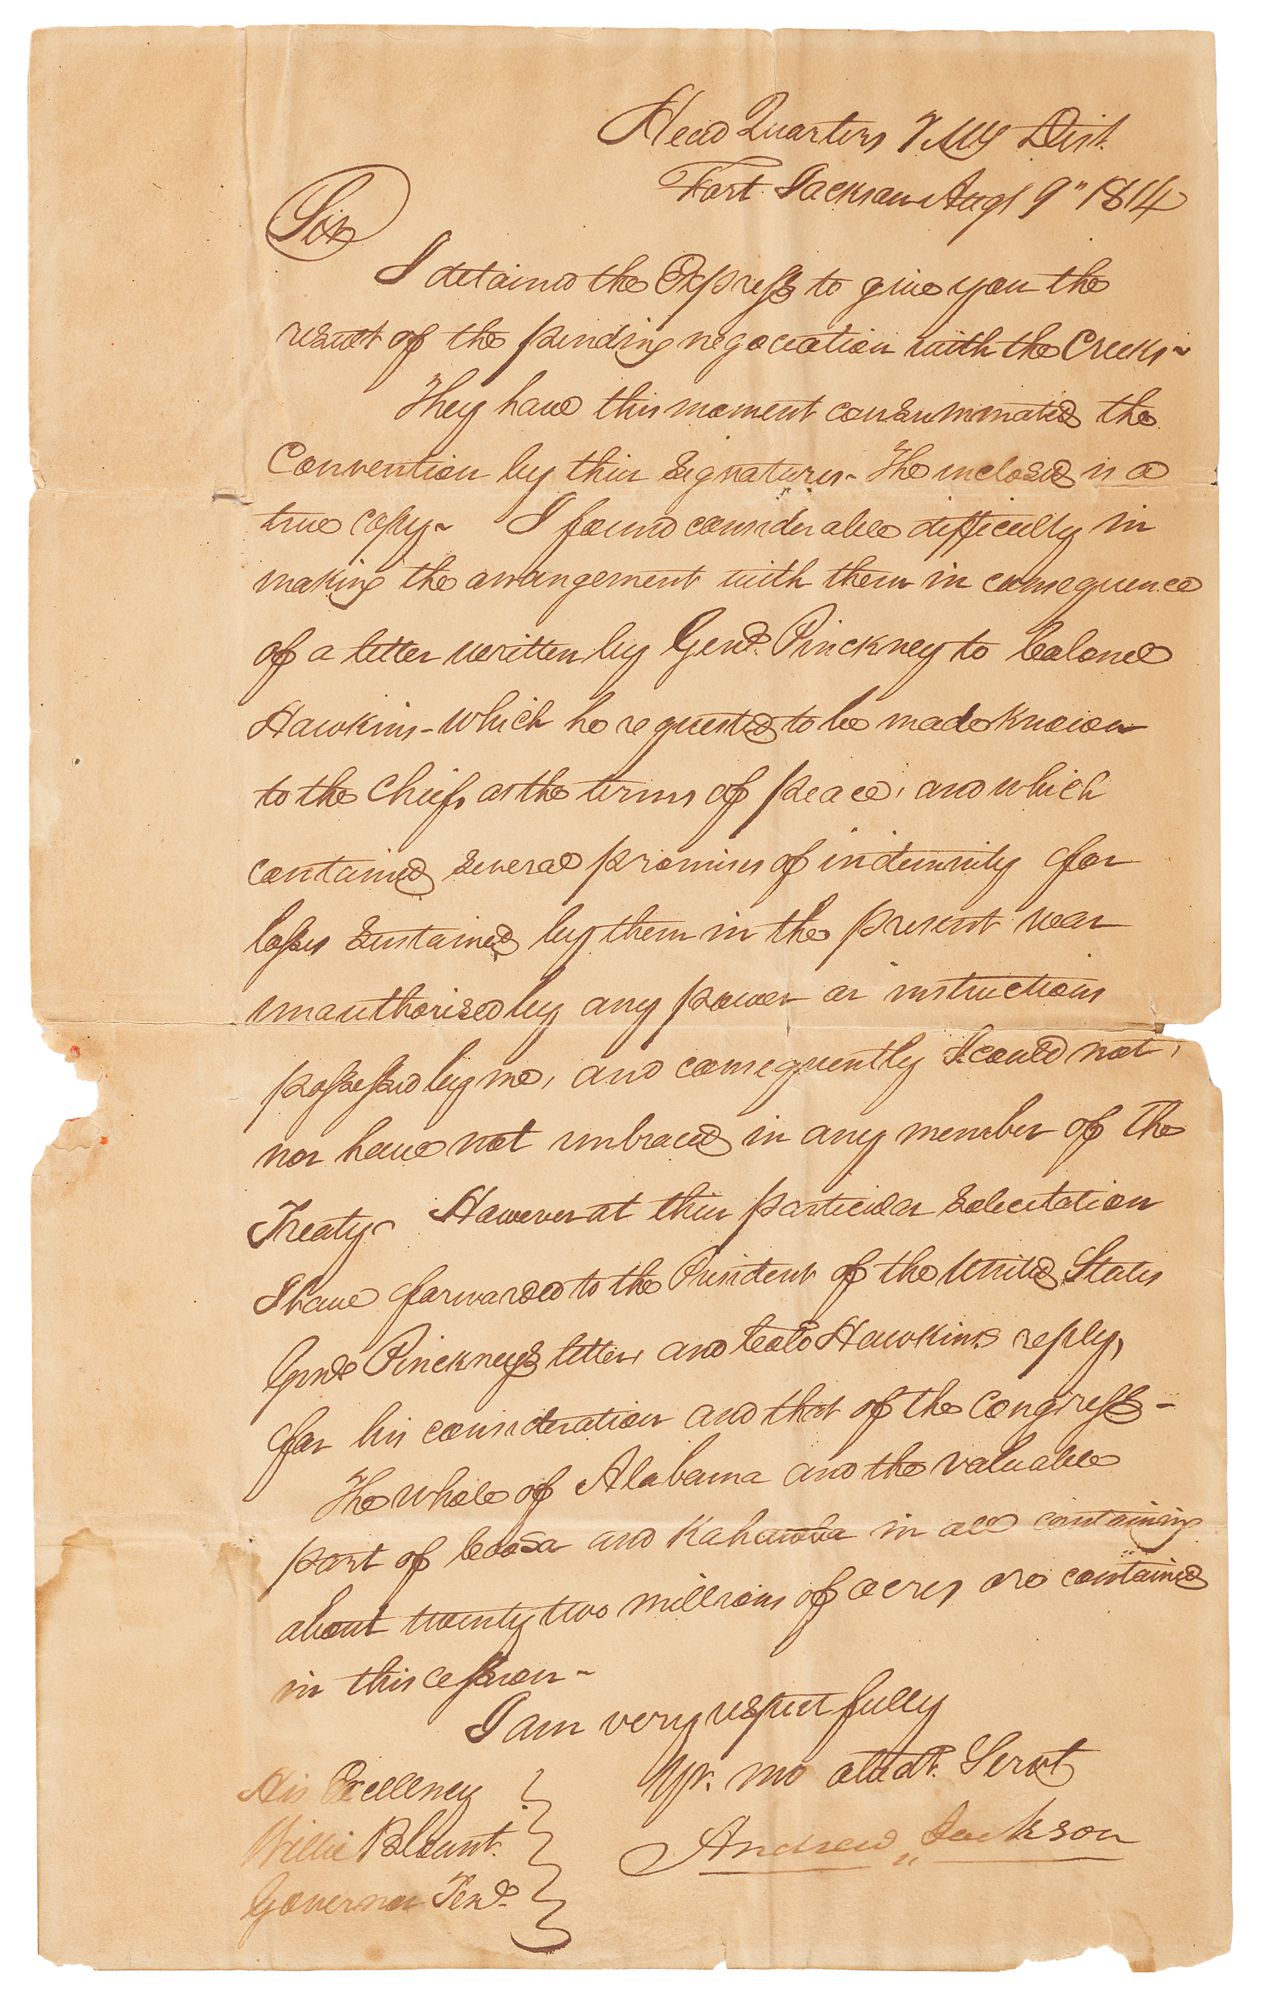 Head Quarters 7 My Dist.
Fort Jackson Augt 9" 1814
Sir
I detained the Express to give you the
result of the pending negociation with the Creeks~
They have this moment consummated the
Convention by their signatures- The inclosed is a
true copy~ I found considerable difficulty in
making the arrangement with them in consequence
of a letter written by Genl. Pinckney to Colonel
Hawkins-which he requested to be made known
to the Chiefs as the terms of peace, and which
contained several promises of indemnity for
losses sustained by them in the present war
unauthorised by any power or instructions
possessed by me, and consequently I could not,
nor have not embraced in any member of the
Treaty~ However at their particular solicitation
I have forwarded to the President of the United States
Genl Pinckneys letter, and Colo Hawkins reply,
for his consideration and that of the Congress-
The whole of Alabama and the valuable
part of Coosa and Kahawba in all containing
about twenty two millions of acres are contained
in this cession~
I am very respectfully
Yr. mo obedt. Servt
Andrew Jackson
His Excellency
Willie Blount.
Governor Tene.